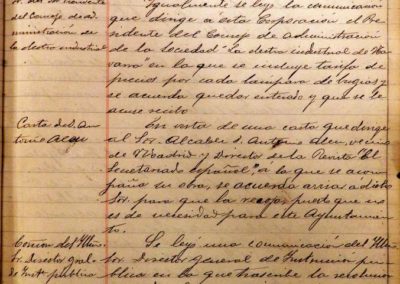 Sr. Presidente
del Consejo de ad-
ministracion de
la electra industrial
Igualmente se leyó la comunicación
que dirige a esta Corporacion el Pre-
sidente del Consejo de administración
de la sociedad "La electra industrial de Na-
varra" en la que se incluye tarifa de
precios por cada lampara de bugias y
se acuerda quedar enterado y que se le
acuse recibo
Carta de D. An-
tonio
En vista de una carta que dirige
al Sor. Alcalde D. Antonio veci-
no de Madrid y Director de la Revista "El
Secretariado español", a la que se acom-
paña su obra, se acuerda a dicho
Sor. para que la recoja, puesto que no
es de necesidad para este Ayuntamien-
to.
Comon. del Ilmo.
Sr. Director gral.
de Instn. publica
Se leyó una comunicación del Ilmo.
Sor. Director General de Instrucción pu-
blica en la que trascribe la resolucion